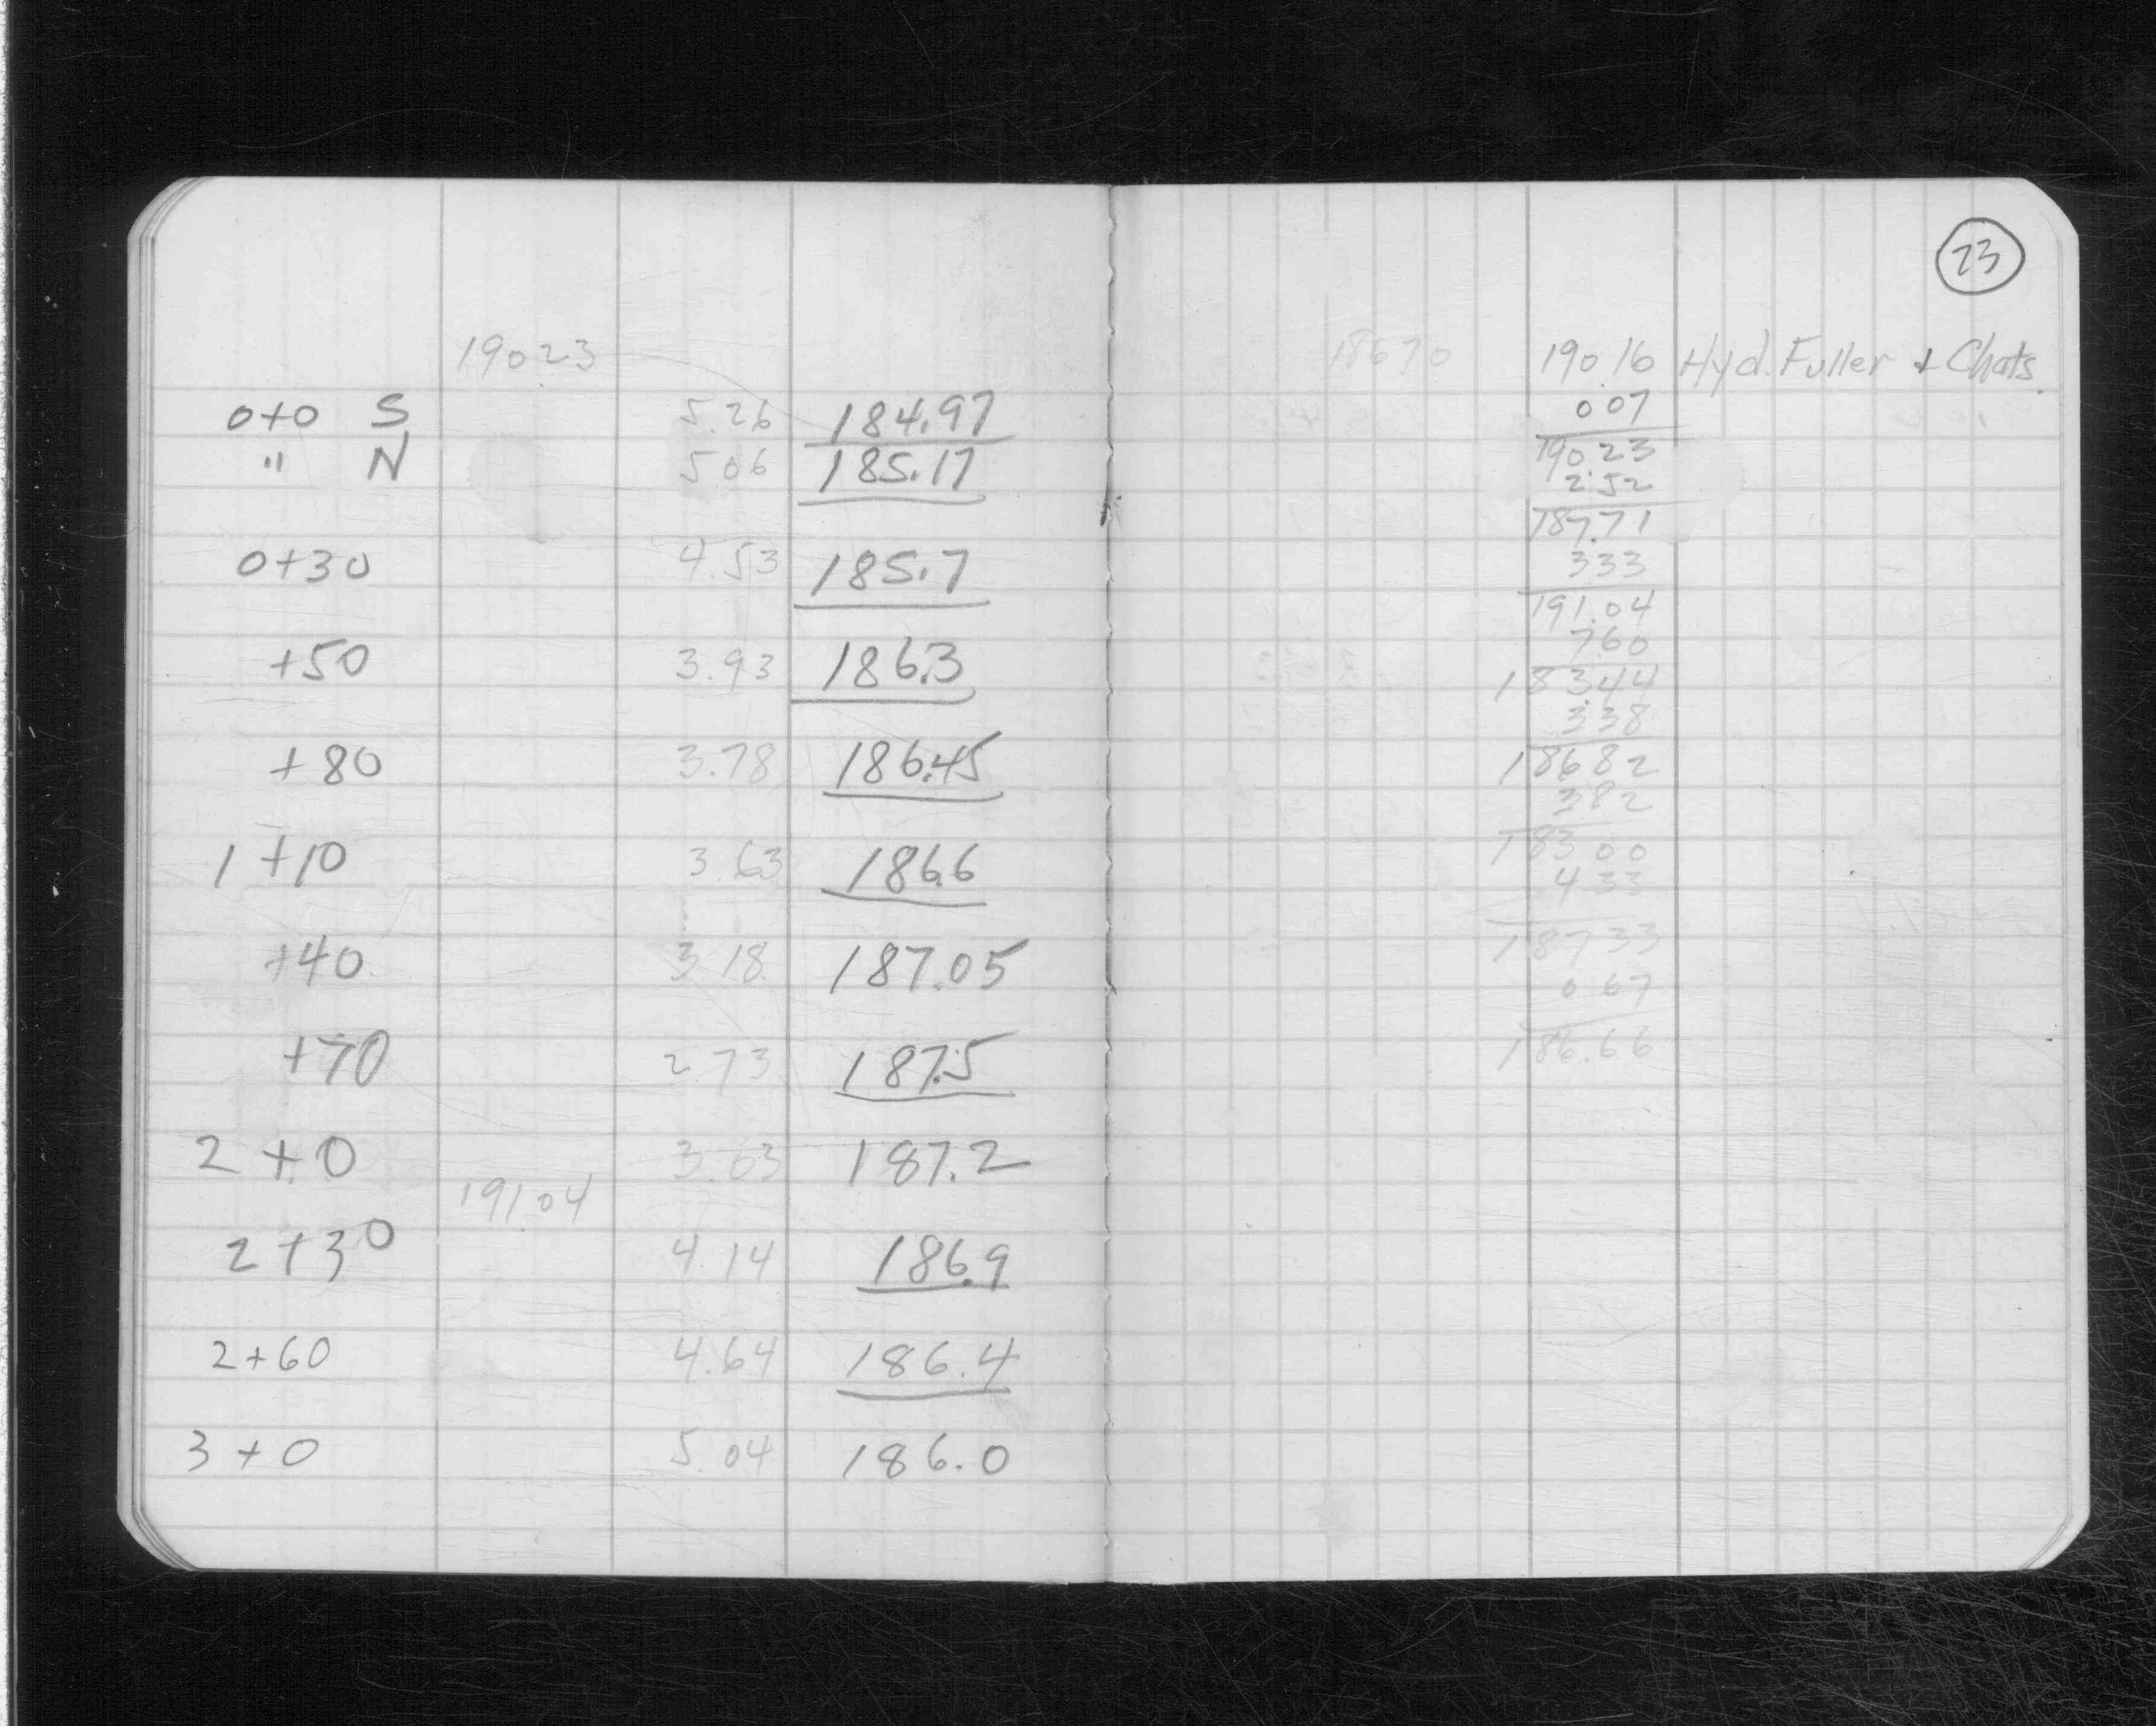 190.23
0+0 S 5.26 184.97
" N 5.06 185.17
0+30 4.53 185.7
+50 3.93 186.3
+80 3.78 186.45
1+10 3.63 186.6
+40 3.18 187.05
+70 2.73 187.5
2+0 3.03 187.2
191.04
2+30 4.14 186.9
2+60 4.64 186.4
3+0 5.04 186.0
23
186.70 190.16 Hyd. Fuller + Chats.
0.07
190.23
2.52
187.71
3.33
191.04
7.60
183.44
3.38
186.82
3.82
183.00
4.33
187.33
0.67
186.66